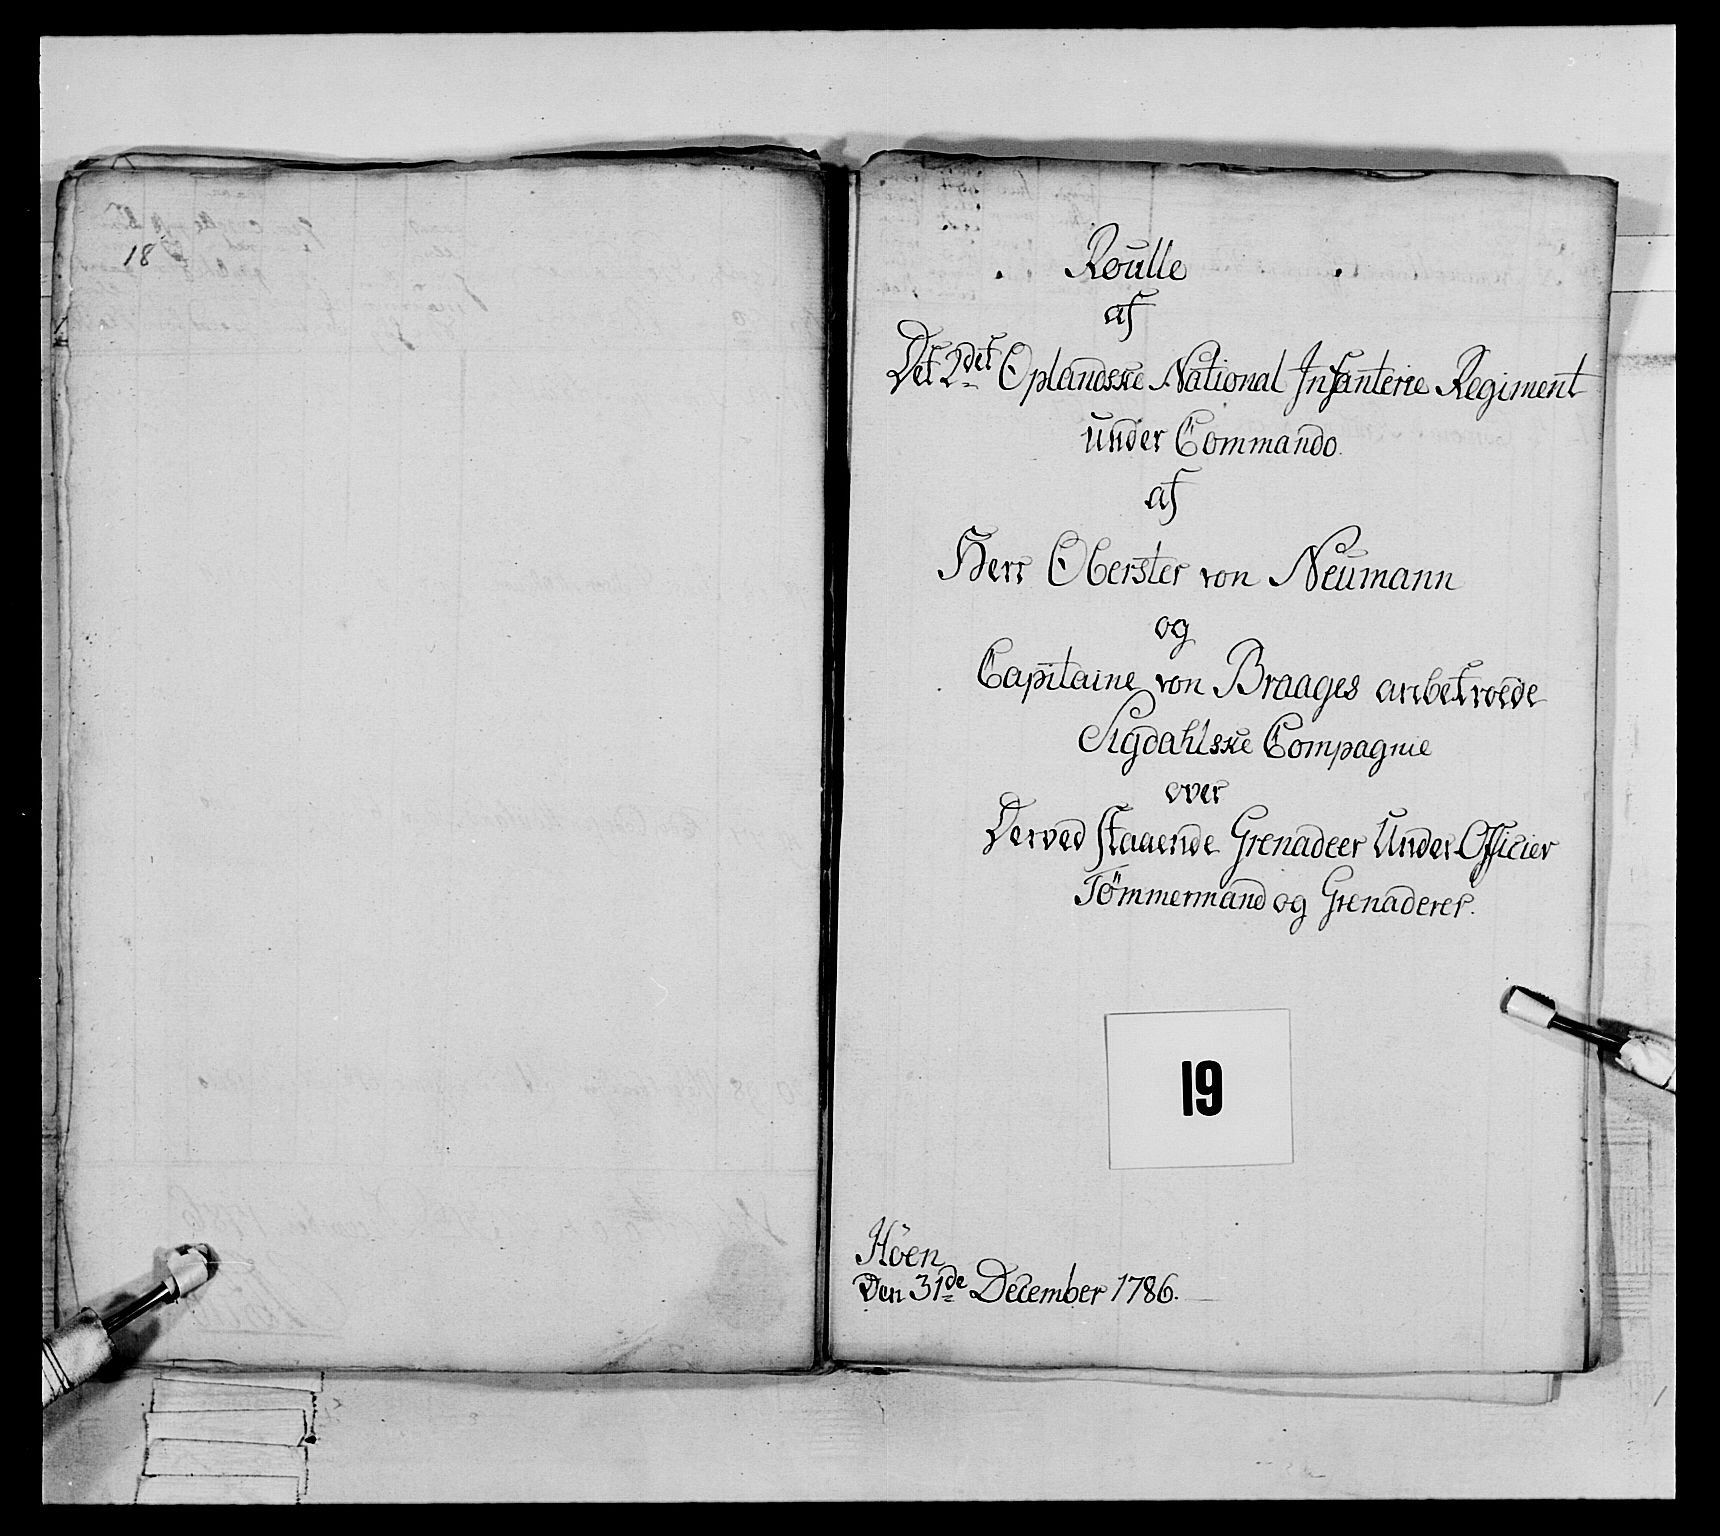 18
Roulle
af
Det 2det Oplandske National Infanterie Regiment
under Commando
af
Herr Oberster von Neumann
og
Capitaine von Braages anbetroede
Sigdahlske Compagnie
over
Derved staaende Grenadeer Under Officier
Tömmermand og Grenaderer.
19
Höen
Den 31de December 1786.